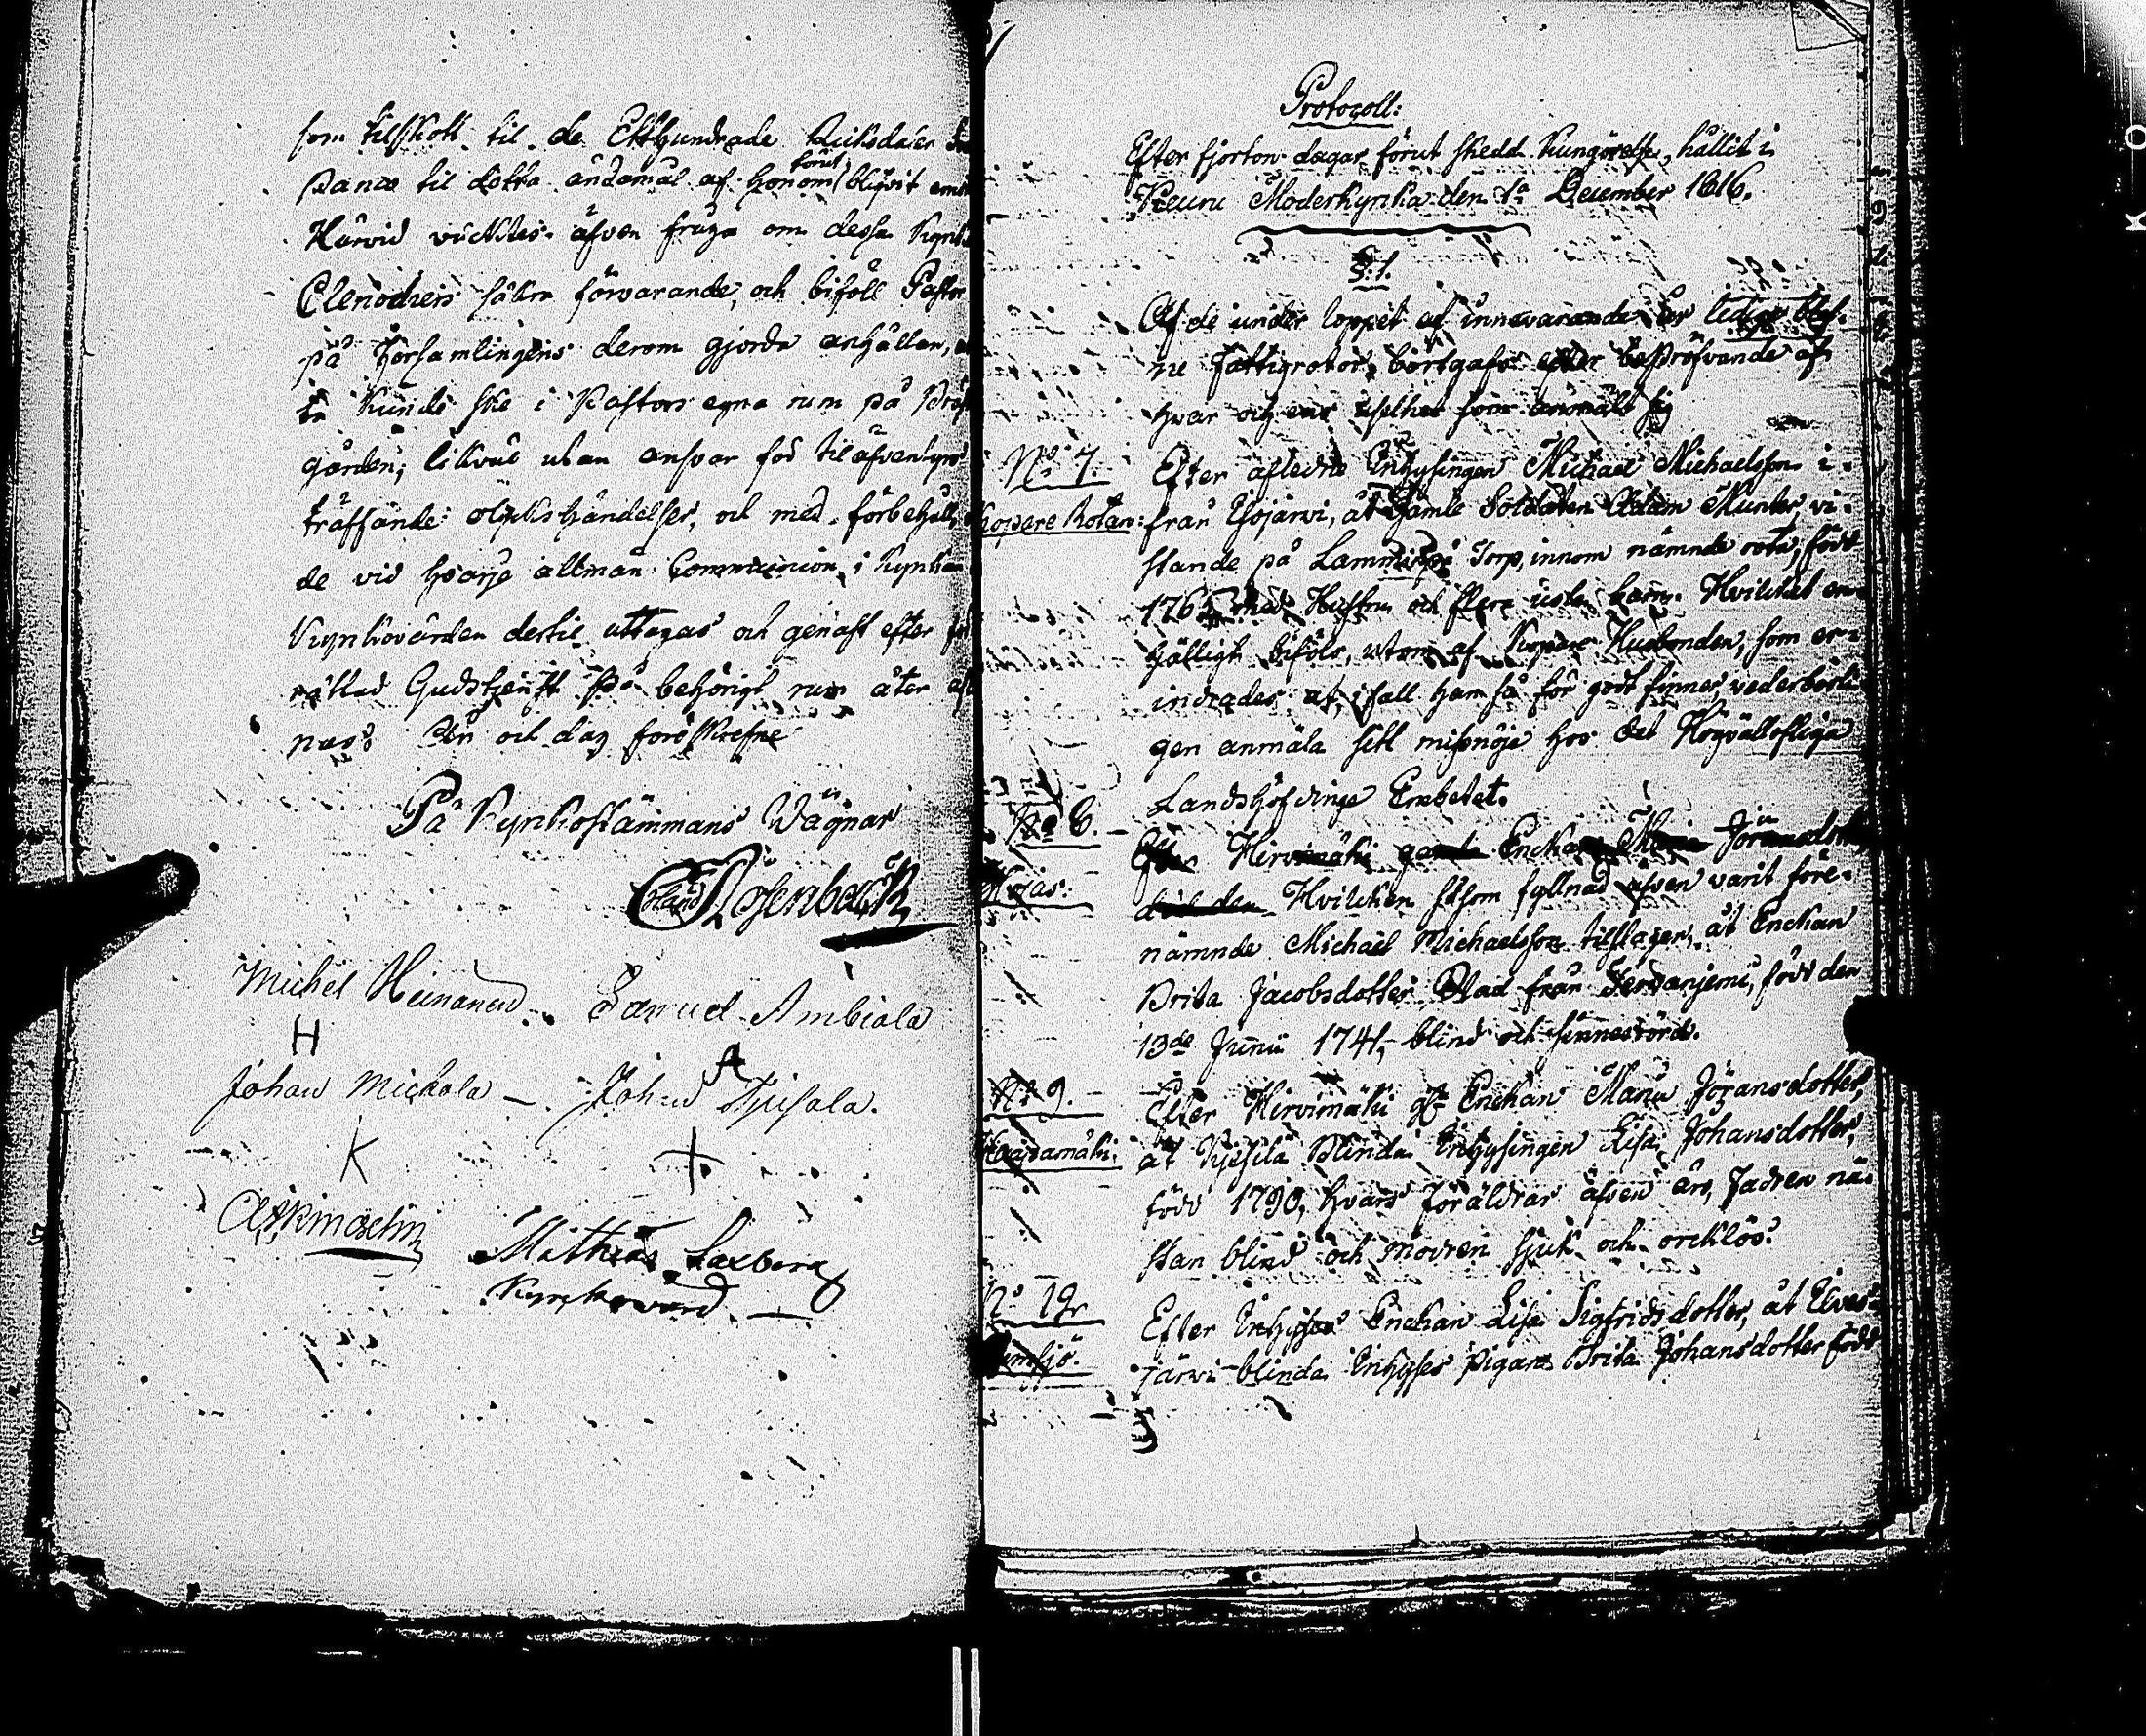 som tilskott til de Etthundrade Riksdaler
Banco til detta ändamål af honom förut blifvit
Härvid väcktes äfven fråga om dessa Kyrko
Clenodiers säkra förvarande, och biföll Pastor
på Församlingens derom gjorda anhållan,
kunde ske i Pastors egna rum på Prest
gården, likväl utan ansvar för tiläfventyrs
träffande olyckshändelser, och med förbehåll,
de vid hvarje allmän Communion i Kyrkan
Kyrkovärden dertil uttagas och genast efter
rättad Gudstjenst på behörigt rum åter
nas. År och dag föreskrefne
På Kyrkostämmans Wägnar
Erland Rosenback
Michel Heinanen Samuel Ambiala
H A
Johan Mickola Johan
K +
Mathias Laxberg
Kyrkovärd
Protocoll:
Efter fjorton dagar förut skedd Kungörelse, hållit i
Keuru Moderkyrka den 1a December 1816.
§. 1.
Af de under loppet af innevarande år lediga blef-
ne Fattigrotor, bortgafs efter bepröfvande af
hvar och ens uselhet som anmält sig
No 7. Efter aflidne Inhysingen Michael Michaelsson i
Kopare Rotan: från Esojärvi, åt Gamle Soldaten Adam Munter, vi-
stande på Torp, innom nämnde rota, född
176 med Hustru och flere usla barn. Hvilchet en-
hälligt bifölls, utom af Kopare Husbonden, som er-
indrades at, ifall han så för godt finner, vederbörli-
gen anmäla sitt missnöje hos det Högvällofliga
Landshöfdinge Embetet.
No 6. Efter Hirvimäki gamla Enckan Maria Jöransdotter
Hvilchen såsom fyllnad äfven varit före-
nämnde Michael Michaelsson tilslagen, åt Enckan
Brita Jacobsdotter Blad från född den
13de Junii 1741, blind och sinnesrörd.
No 9. Efter Hirvimäki Enckan Maria Jöransdotter,
åt Blinda Inhysingen Lisa Johansdotter,
född 1790, hvars Föräldrar äfven äro, Fadren nä-
stan blind och modren sjuk och orcklös.
No 19. Efter Inhyses Enckan Lisa Sigfridsdotter, åt
järvi blinda Inhyses pigan Brita Johansdotter född